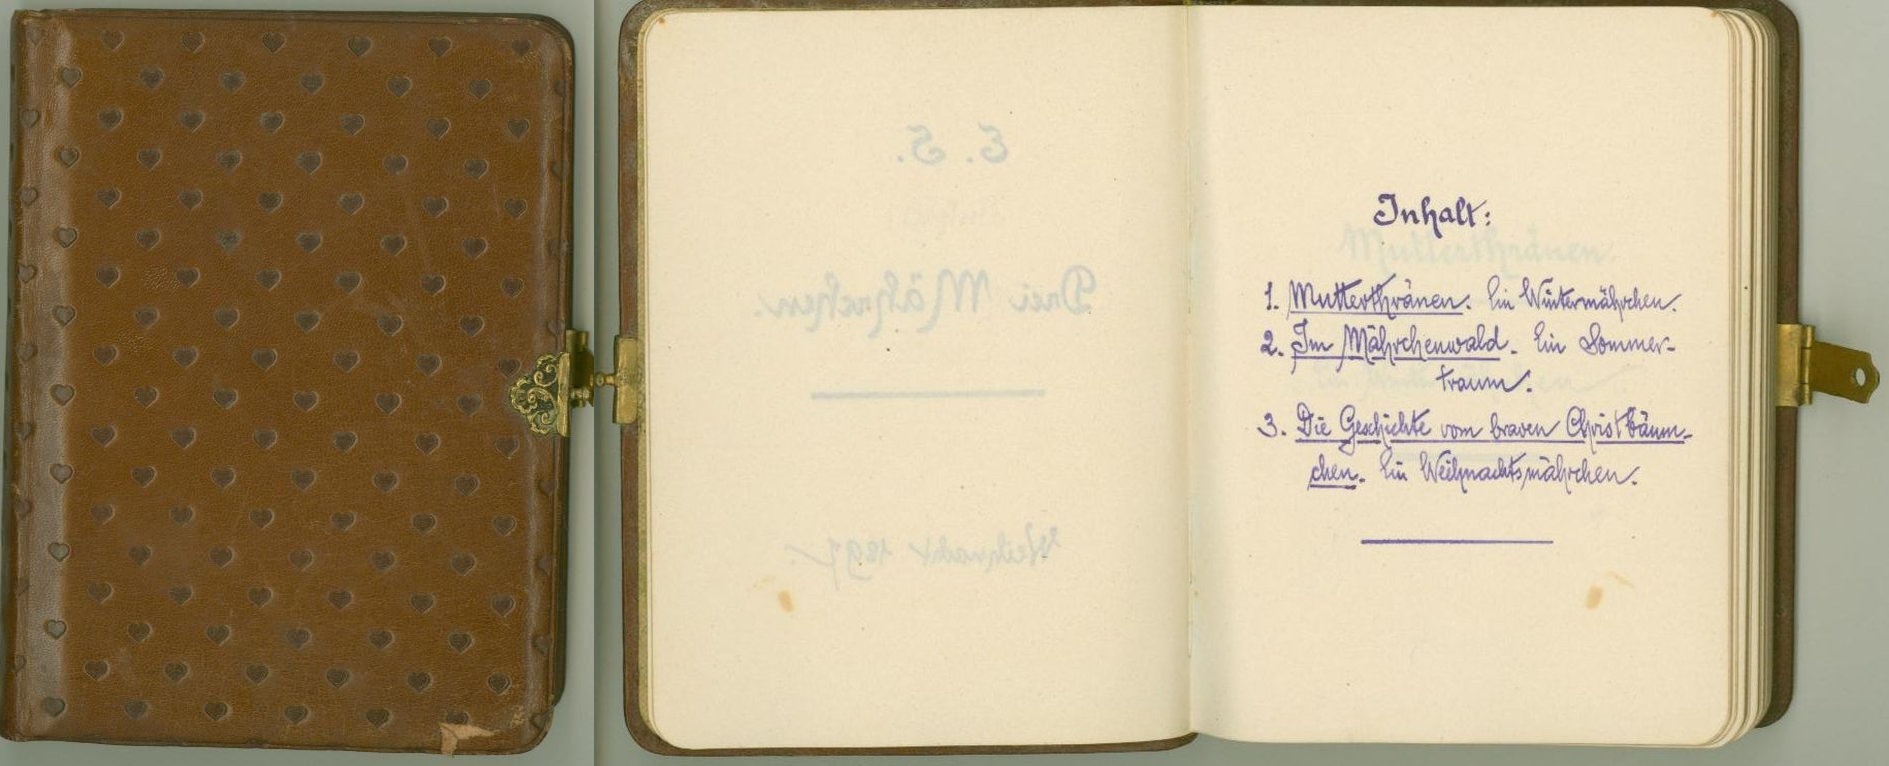 E. S.
Drei Mährchen.
Weihnacht 1897.
Inhalt:
1. Mutterthränen. Ein Wintermährchen.
2. Im Mährchenwald. Ein Sommer-
traum.
3. Die Geschichte vom braven Christbäum-
chen. Ein Weihnachtsmährchen.